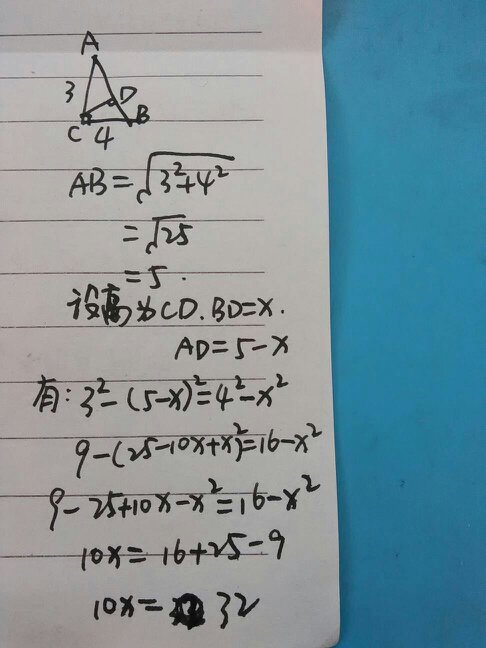 A
3
D
C
B
4
AB=√3²+4²
=√25
=5.
设高为CD.BD=x.
AD=5-x
有:3²-(5-x)²=4²-x²
9-(25-10x+x²)=16-x²
9-25+10x-x²=16-x²
10x=16+25-9
10x=32